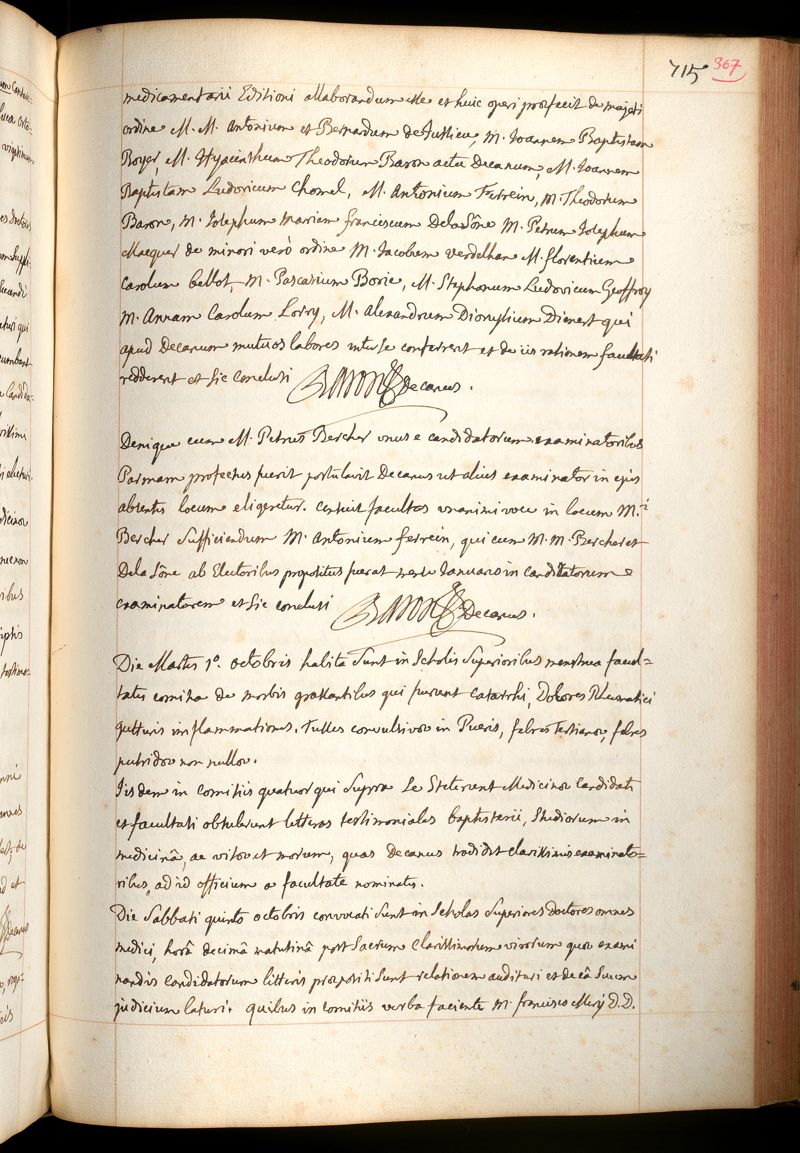 715 367
medicamentarii Editioni allaborandum esse et huic operi præfecit de majori
ordine M. M. Antonium et Bernardum de Jussieu, M. Joannem Baptistam
Boyer, M. Hyacinthum Theodorum Baron actu Decanum, M. Joannem
Baptistam Ludovicum Chomel, M. Antonium Ferrein, M. Theodorum
Baron, M. Josephum Mariam franciscum De la Sône M. Petrum Josephum
Macquer de minori verò ordine M. Jacobum Verdelhan M. florentium
Carolum bellot, M. Pascasium Borie, M. Stephanum Ludovicum Geoffroy
M. Annam Carolum Lorry, M. Alexandrum Dionysium Dienert qui
apud Decanum mutuos labores inter se conferrent et de iis rationem facultati
redderent et sic conclusi Baron Decanus.
Denique cum M. Petrus Bercher unus e candidatorum examinatoribus
Parmam profectus fuerit postulavit Decanus ut alius examinator in ejus
absentis locum eligeretur. Censuit facultas unanimi voce in locum M.i
Bercher sufficiendum M. Antonium ferrein, qui cum M. M. Bercher et
De la Sône ab Electoribus propositus fuerat mense Januario in canditatorum
examinatorem et sic conclusi Baron Decanus.
Die Martis 1º. octobris habita sunt in Scholis Superioribus menstrua facul=
tatis comitia de morbis grassantibus qui fuerunt Catarrhi, Dolores Rheumatici
gutturis inflammationes. Tusses convulsivæ in Pueris, febres Tertianæ, febres
putridæ non nullæ.
Iisdem in comitiis quatuor qui supra se steterunt Medicinæ Candidati
et facultati obtulerunt litteras testimoniales baptisterii, Studiorum in
medicinâ, ac vitæ et morum, quas Decanus tradidit clarissimis examinato=
ribus, ad id officium a facultate nominatis.
Die Sabbati quinto octobris convocati sunt in Scholas Superiores doctores omnes
medici, horâ decimâ matutinâ post Sacrum clarissimorum virorum qui exami
nandis candidatorum litteris præpositi sunt relationem audituri et de eâ suum
judicium laturi. quibus in comitiis verba faciente M. francisco Mery D. D.